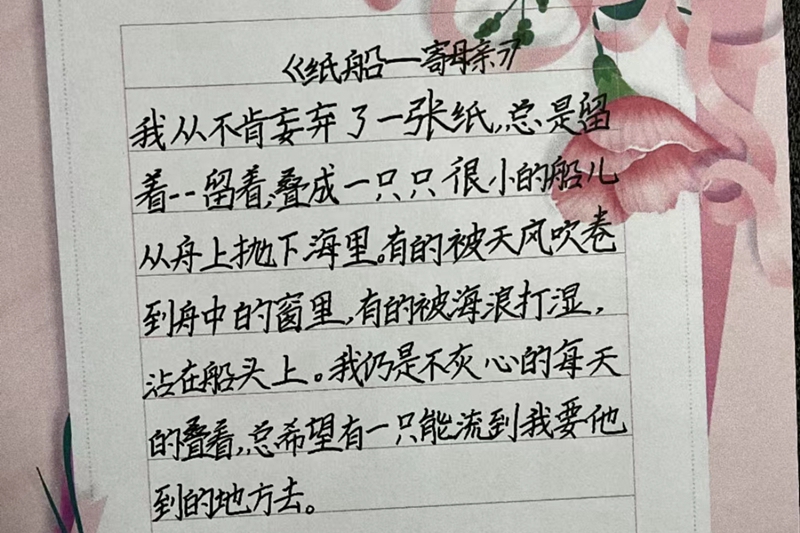 《纸船一寄母亲》
我从不肯妄弃了一张纸,总是留
着--留着,叠成一只只很小的船儿
从舟上抛下海里。有的被天风吹卷
到舟中的窗里,有的被海浪打湿,
沾在船头上。我仍是不灰心的每天
的叠着,总希望有一只能流到我要他
到的地方去。